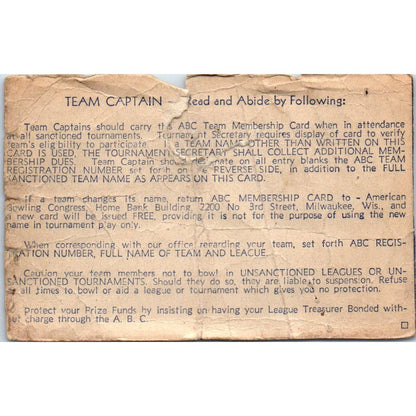 TEAM CAPTAIN — Read and Abide by Following:
Team Captains should carry this ABC Team Membership Card when in attendance
at all sanctioned tournaments. Tournament Secretary requires display of card to verify
team's eligibility to participate. If a TEAM NAME OTHER THAN WRITTEN ON THIS
CARD IS USED, THE TOURNAMENT SECRETARY SHALL COLLECT ADDITIONAL MEM-
BERSHIP DUES. Team Captain should designate on all entry blanks the ABC TEAM
REGISTRATION NUMBER set forth on the REVERSE SIDE, in addition to the FULL
SANCTIONED TEAM NAME AS APPEARS ON THIS CARD.
If a team changes its name, return ABC MEMBERSHIP CARD to - American
Bowling Congress, Home Bank Building, 2200 No 3rd Street, Milwaukee, Wis., and
a new card will be issued FREE, providing it is not for the purpose of using the new
name in tournament play only.
When corresponding with our office regarding your team, set forth ABC REGIS-
TRATION NUMBER, FULL NAME OF TEAM AND LEAGUE.
Caution your team members not to bowl in UNSANCTIONED LEAGUES OR UN-
SANCTIONED TOURNAMENTS. Should they do so, they are liable to suspension. Refuse
at all times to bowl or aid a league or tournament which gives you no protection.
Protect your Prize Funds by insisting on having your League Treasurer Bonded with-
out charge through the A. B. C.